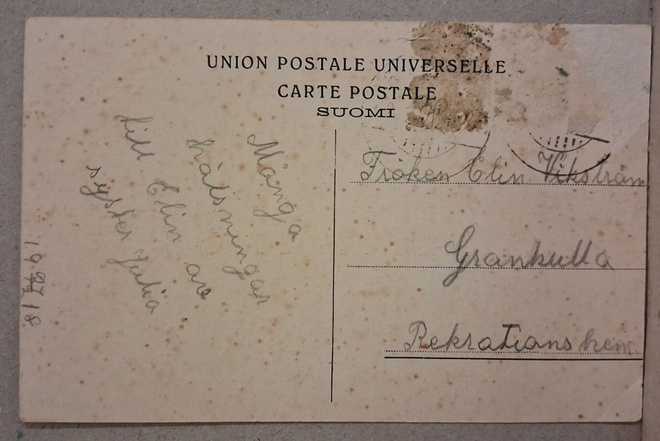 UNION POSTALE UNIVERSELLE
CARTE POSTALE
SUOMI
Många
hälsningar
till Elin av
syster Julia
Fröken Elin Vikström
Grankulla
Rekrations hem